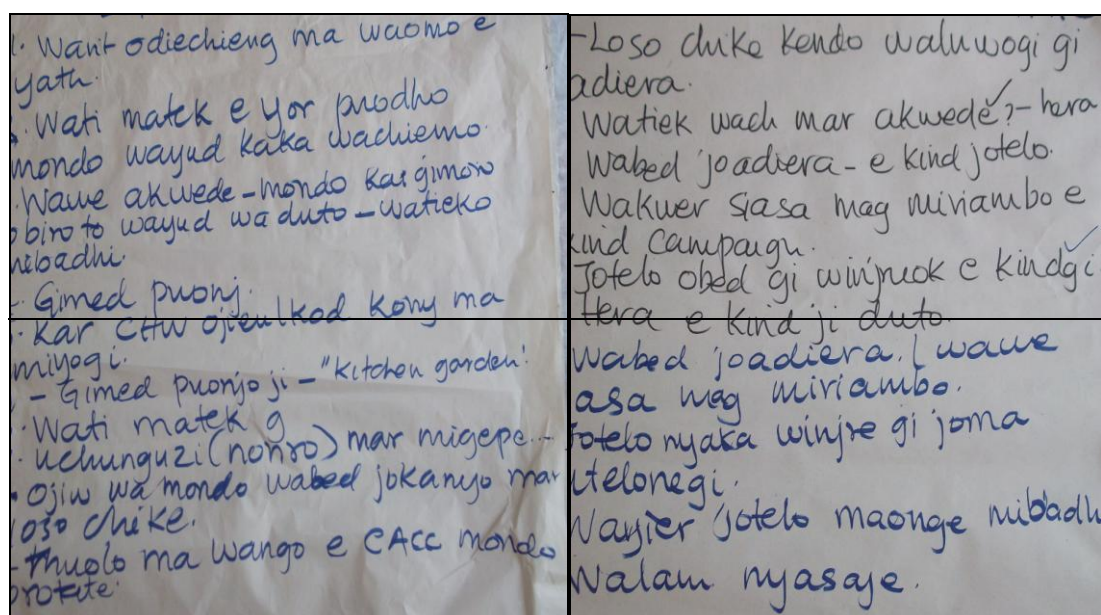 1. Want odiechieng ma waomo e
yath.
Wati matek e yor prodho
mondo wayud kaka wachiemo.
Wawe akwede - mondo ka gimoro
obiro to wayud waduto - watieko
mibadhi.
- Gimed puonj.
Kar CHW ojiwlkod kony ma
miyogi.
- Gimed puonjo ji - "Kitchen garden'
Wati matek g
uchunguzi (nonro) mar migepe -
- Ojiw wa mondo wabed jokanyo mar
loso chike.
- Thuolo ma wango e CACC mondo
-Loso chike kendo waluwogi gi
adiera.
Watiek wach mar akwede? - hera
Wabed joadiera - e kind jotelo.
Wakwer siasa mag miriambo e
kind campaign.
Jotelo obed gi winjruok e kindgi
Hera e kind ji duto.
Wabed joadiera. / wawe
asa mag miriambo.
Jotelo nyaka winjre gi joma
telonegi.
Wayier jotelo maonge mibadh
Walam nyasaje.